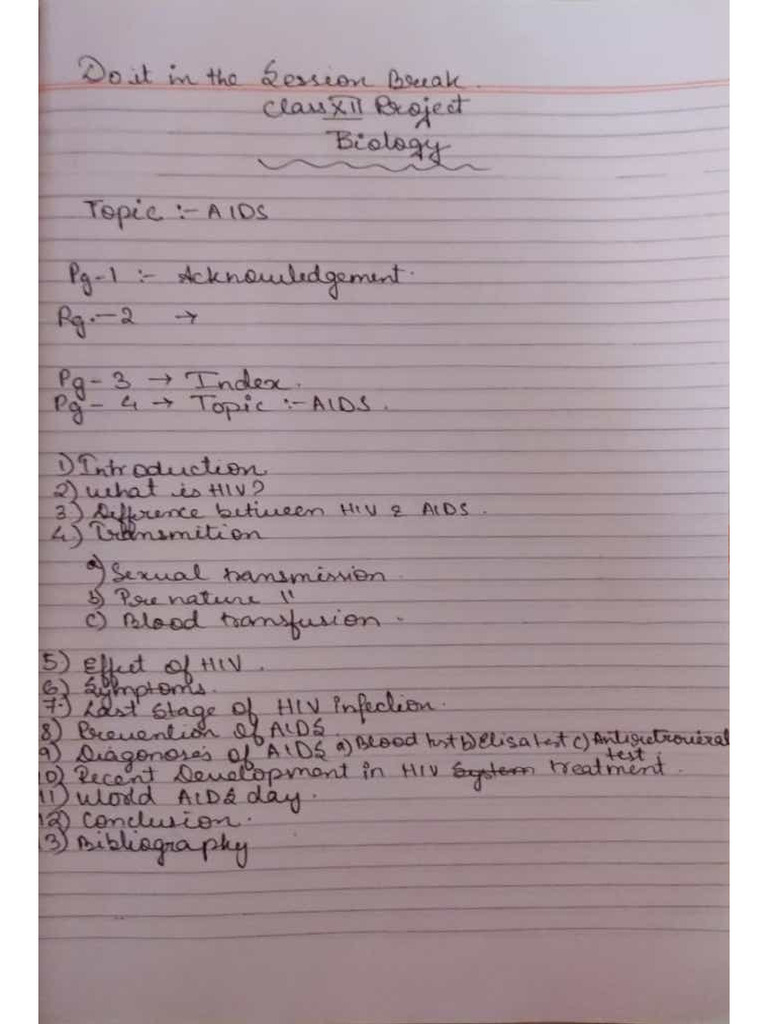 Do it in the Session Break.
Class XII Project
Biology
Topic :- AIDS
Pg-1 :- Acknowledgement.
Pg.-2 →
Pg-3 → Index.
Pg-4 → Topic :- AIDS.
1) Introduction
2) What is HIV?
3) Difference between HIV & AIDS.
4) Transmition
a) Sexual transmission.
b) Pre nature "
c) Blood transfusion.
5) Effect of HIV.
6) Symptoms.
7) Last Stage of HIV infection.
8) Prevention of AIDS.
9) Diagonoses of AIDS a) Blood test b) Elisa test c) Antiretroviral test.
10) Recent Development in HIV System treatment.
11) World AIDS day.
12) Conclusion.
13) Bibliography